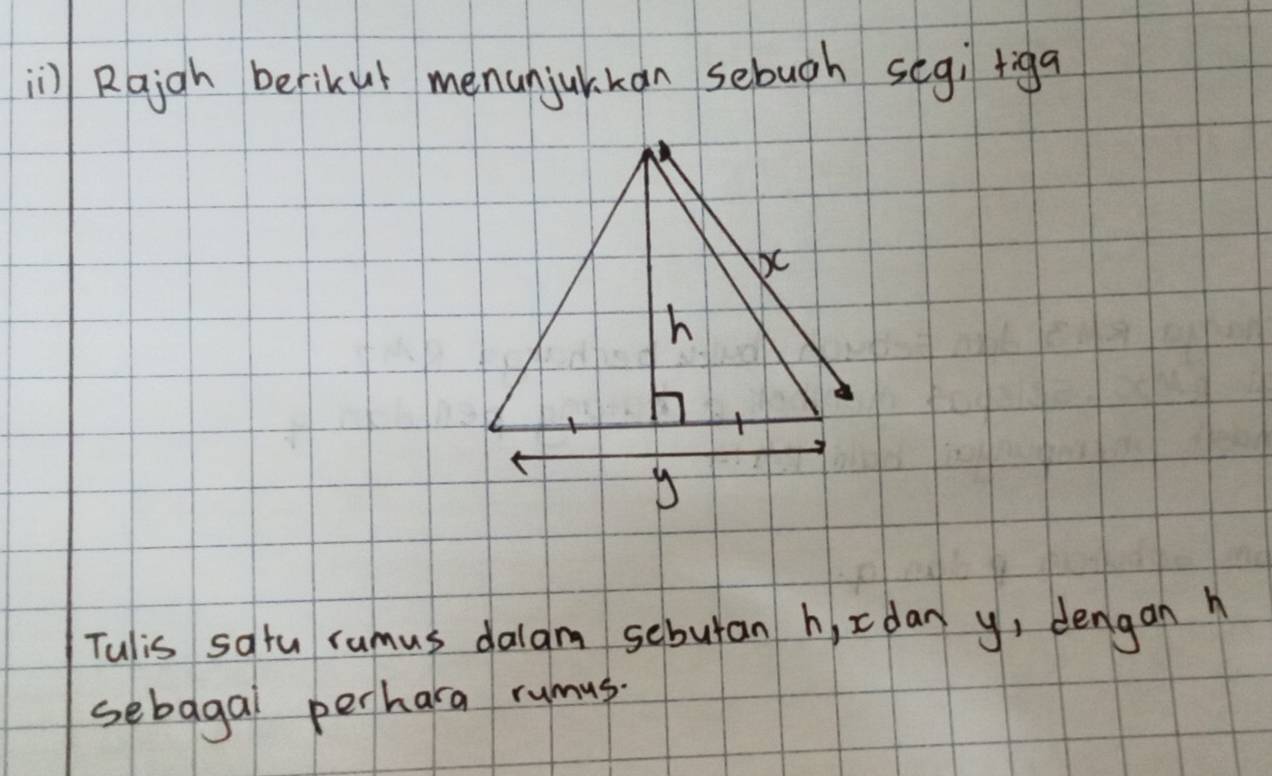 ii) Rajah berikut menunjukkan sebuah segi tiga
x
h
y
Tulis satu rumus dalam sebutan h, x dan y, dengan h
sebagai perhara rumus.